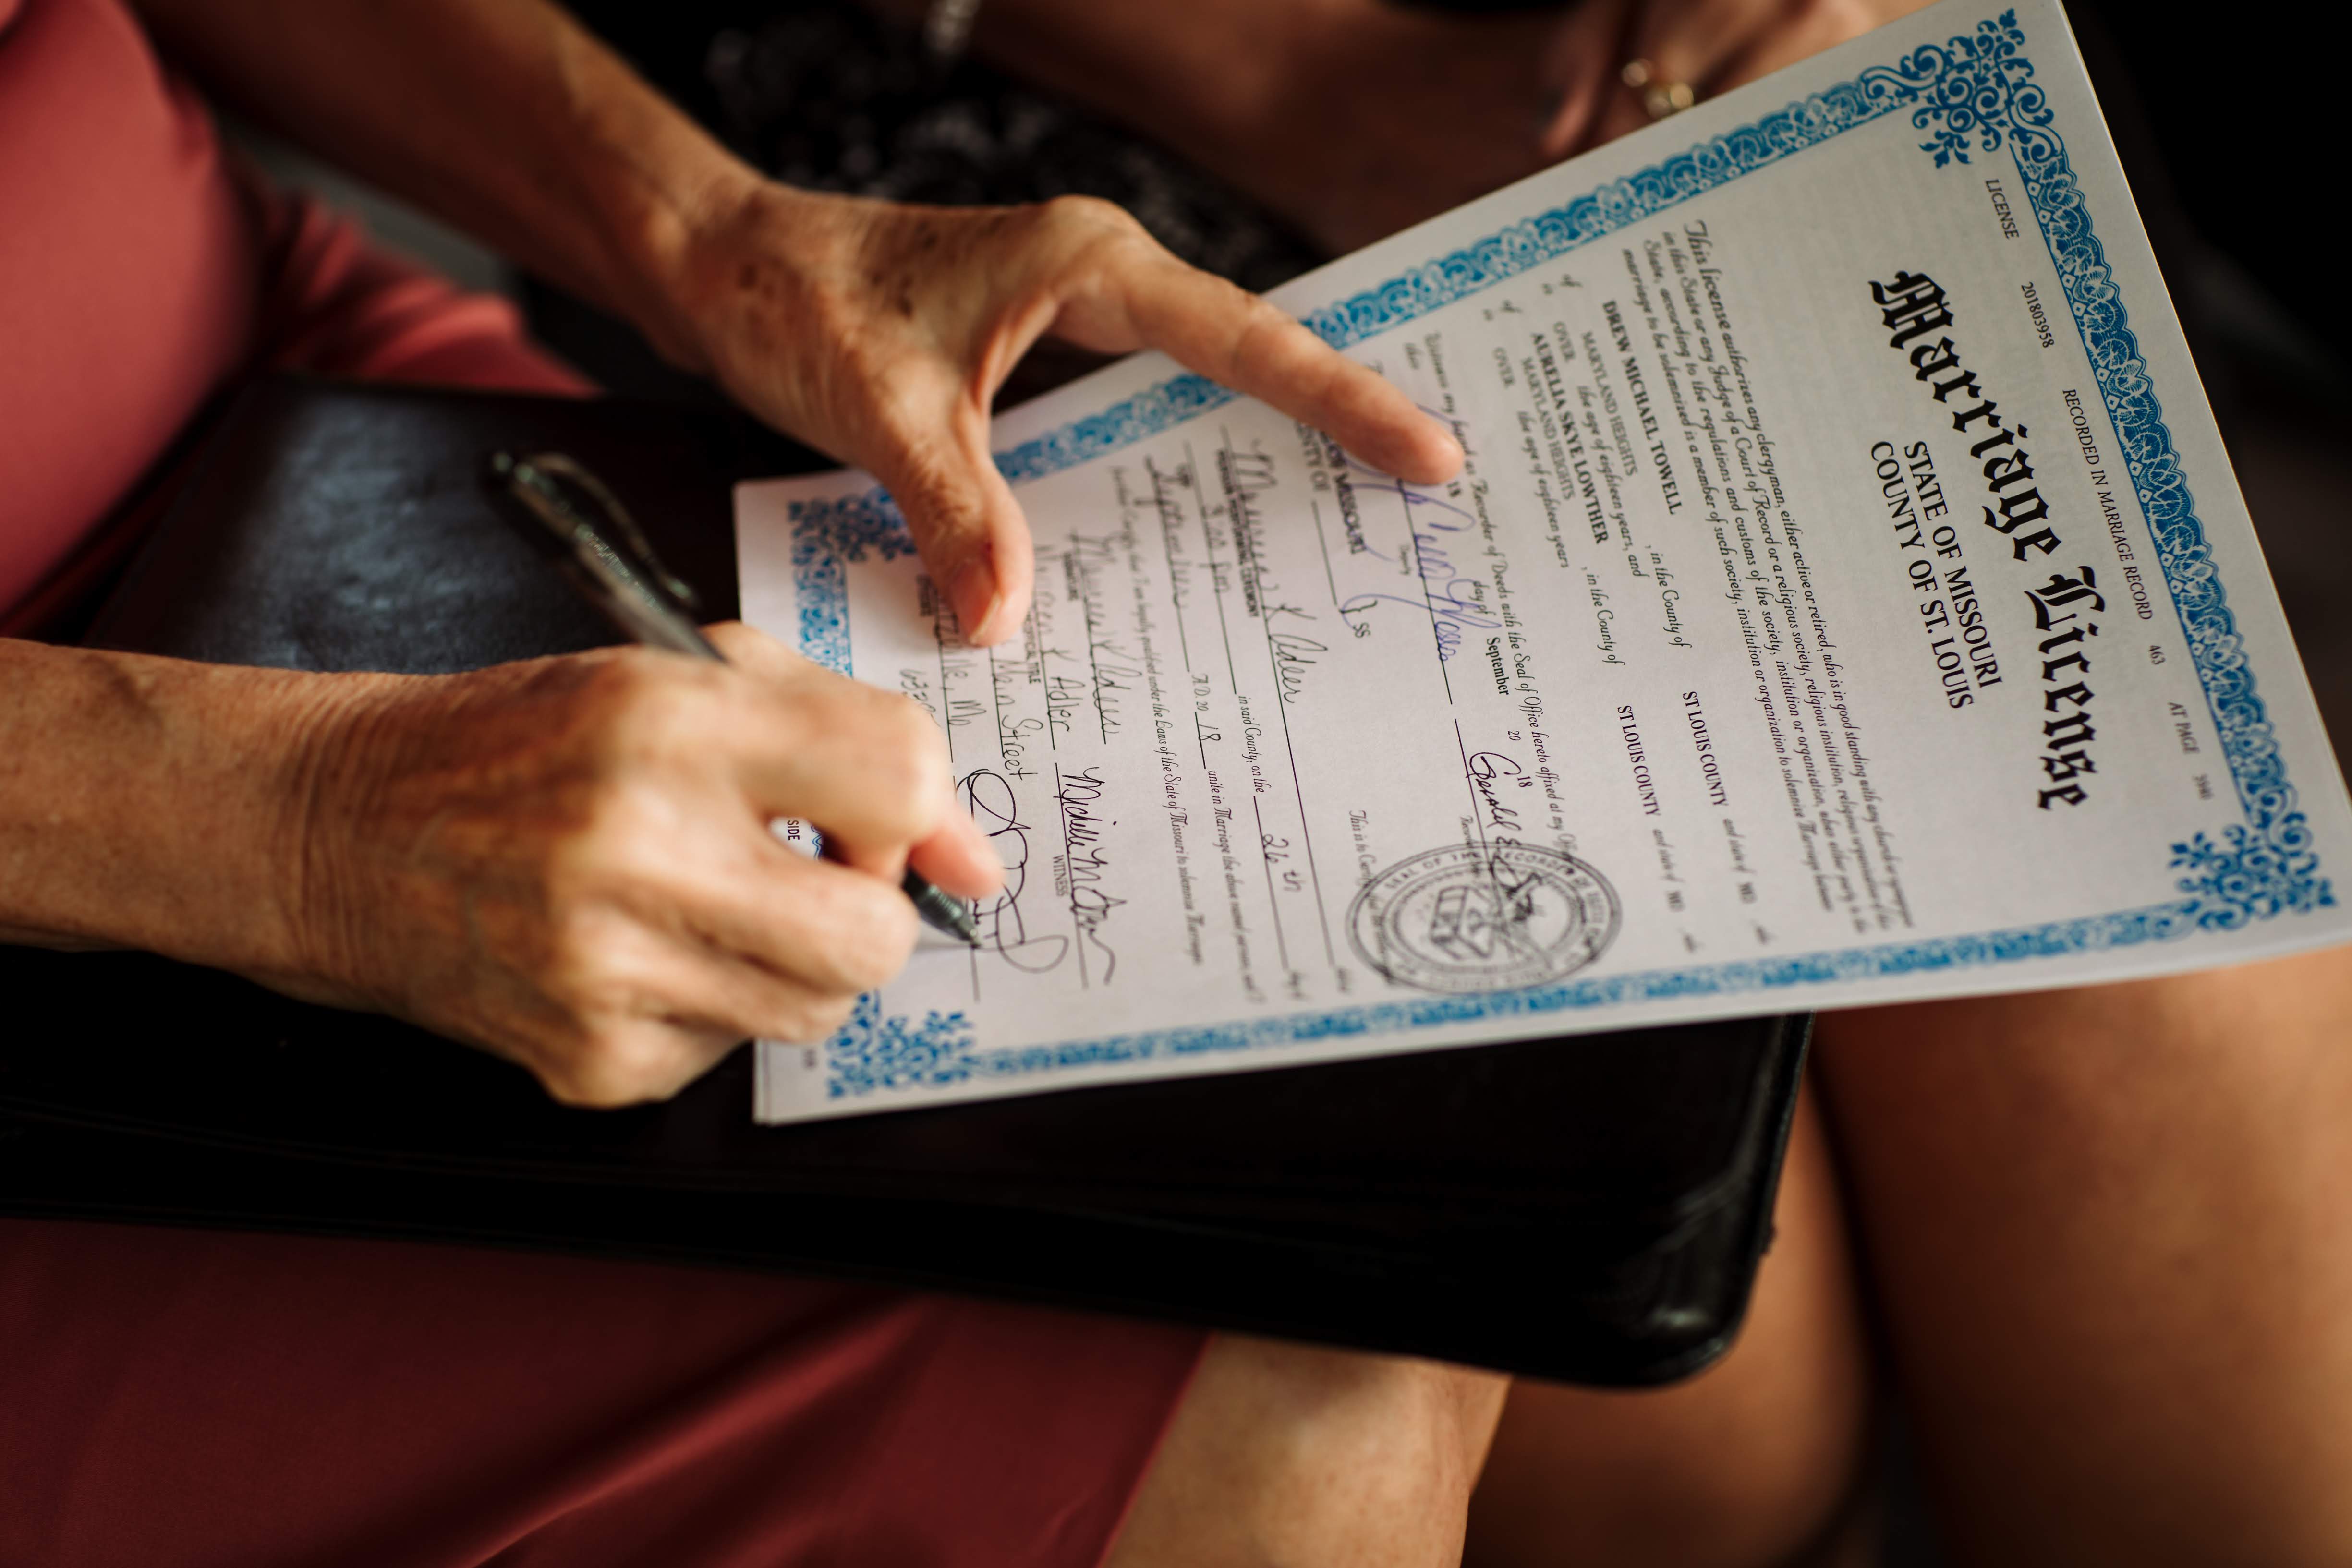 LICENSE 201803958 RECORDED IN MARRIAGE RECORD 463 AT PAGE
Marriage License
STATE OF MISSOURI
COUNTY OF ST. LOUIS
This license authorizes any clergyman, either active or retired, who is in good standing with any church or synagogue
in this State or any Judge of a Court of Record or a religious society, religious institution, or religious organization of this
State, according to the regulations and customs of the society, institution or organization, when either party to the
marriage to be solemnized is a member of such society, institution or organization to solemnize Marriage between
DREW MICHAEL TOWELL
of MARYLAND HEIGHTS , in the County of ST LOUIS COUNTY and state of MO , who
is OVER the age of eighteen years, and
AURELIA SKYE LOWTHER
of MARYLAND HEIGHTS , in the County of ST LOUIS COUNTY and state of MO , who
is OVER the age of eighteen years
Witness my hand as Recorder of Deeds with the Seal of Office hereto affixed at my Office
this day of September 20 18
Deputy
OF MISSOURI } SS
This is to Certify
K Adler
in said County, on the 26th day of
September A.D. 20 18 unite in Marriage the above named persons, and I
further Certify that I am legally qualified under the Laws of the State of Missouri to solemnize Marriages
SIGNATURE
K Adler WITNESS
TITLE
Main Street
Mo
SIDE